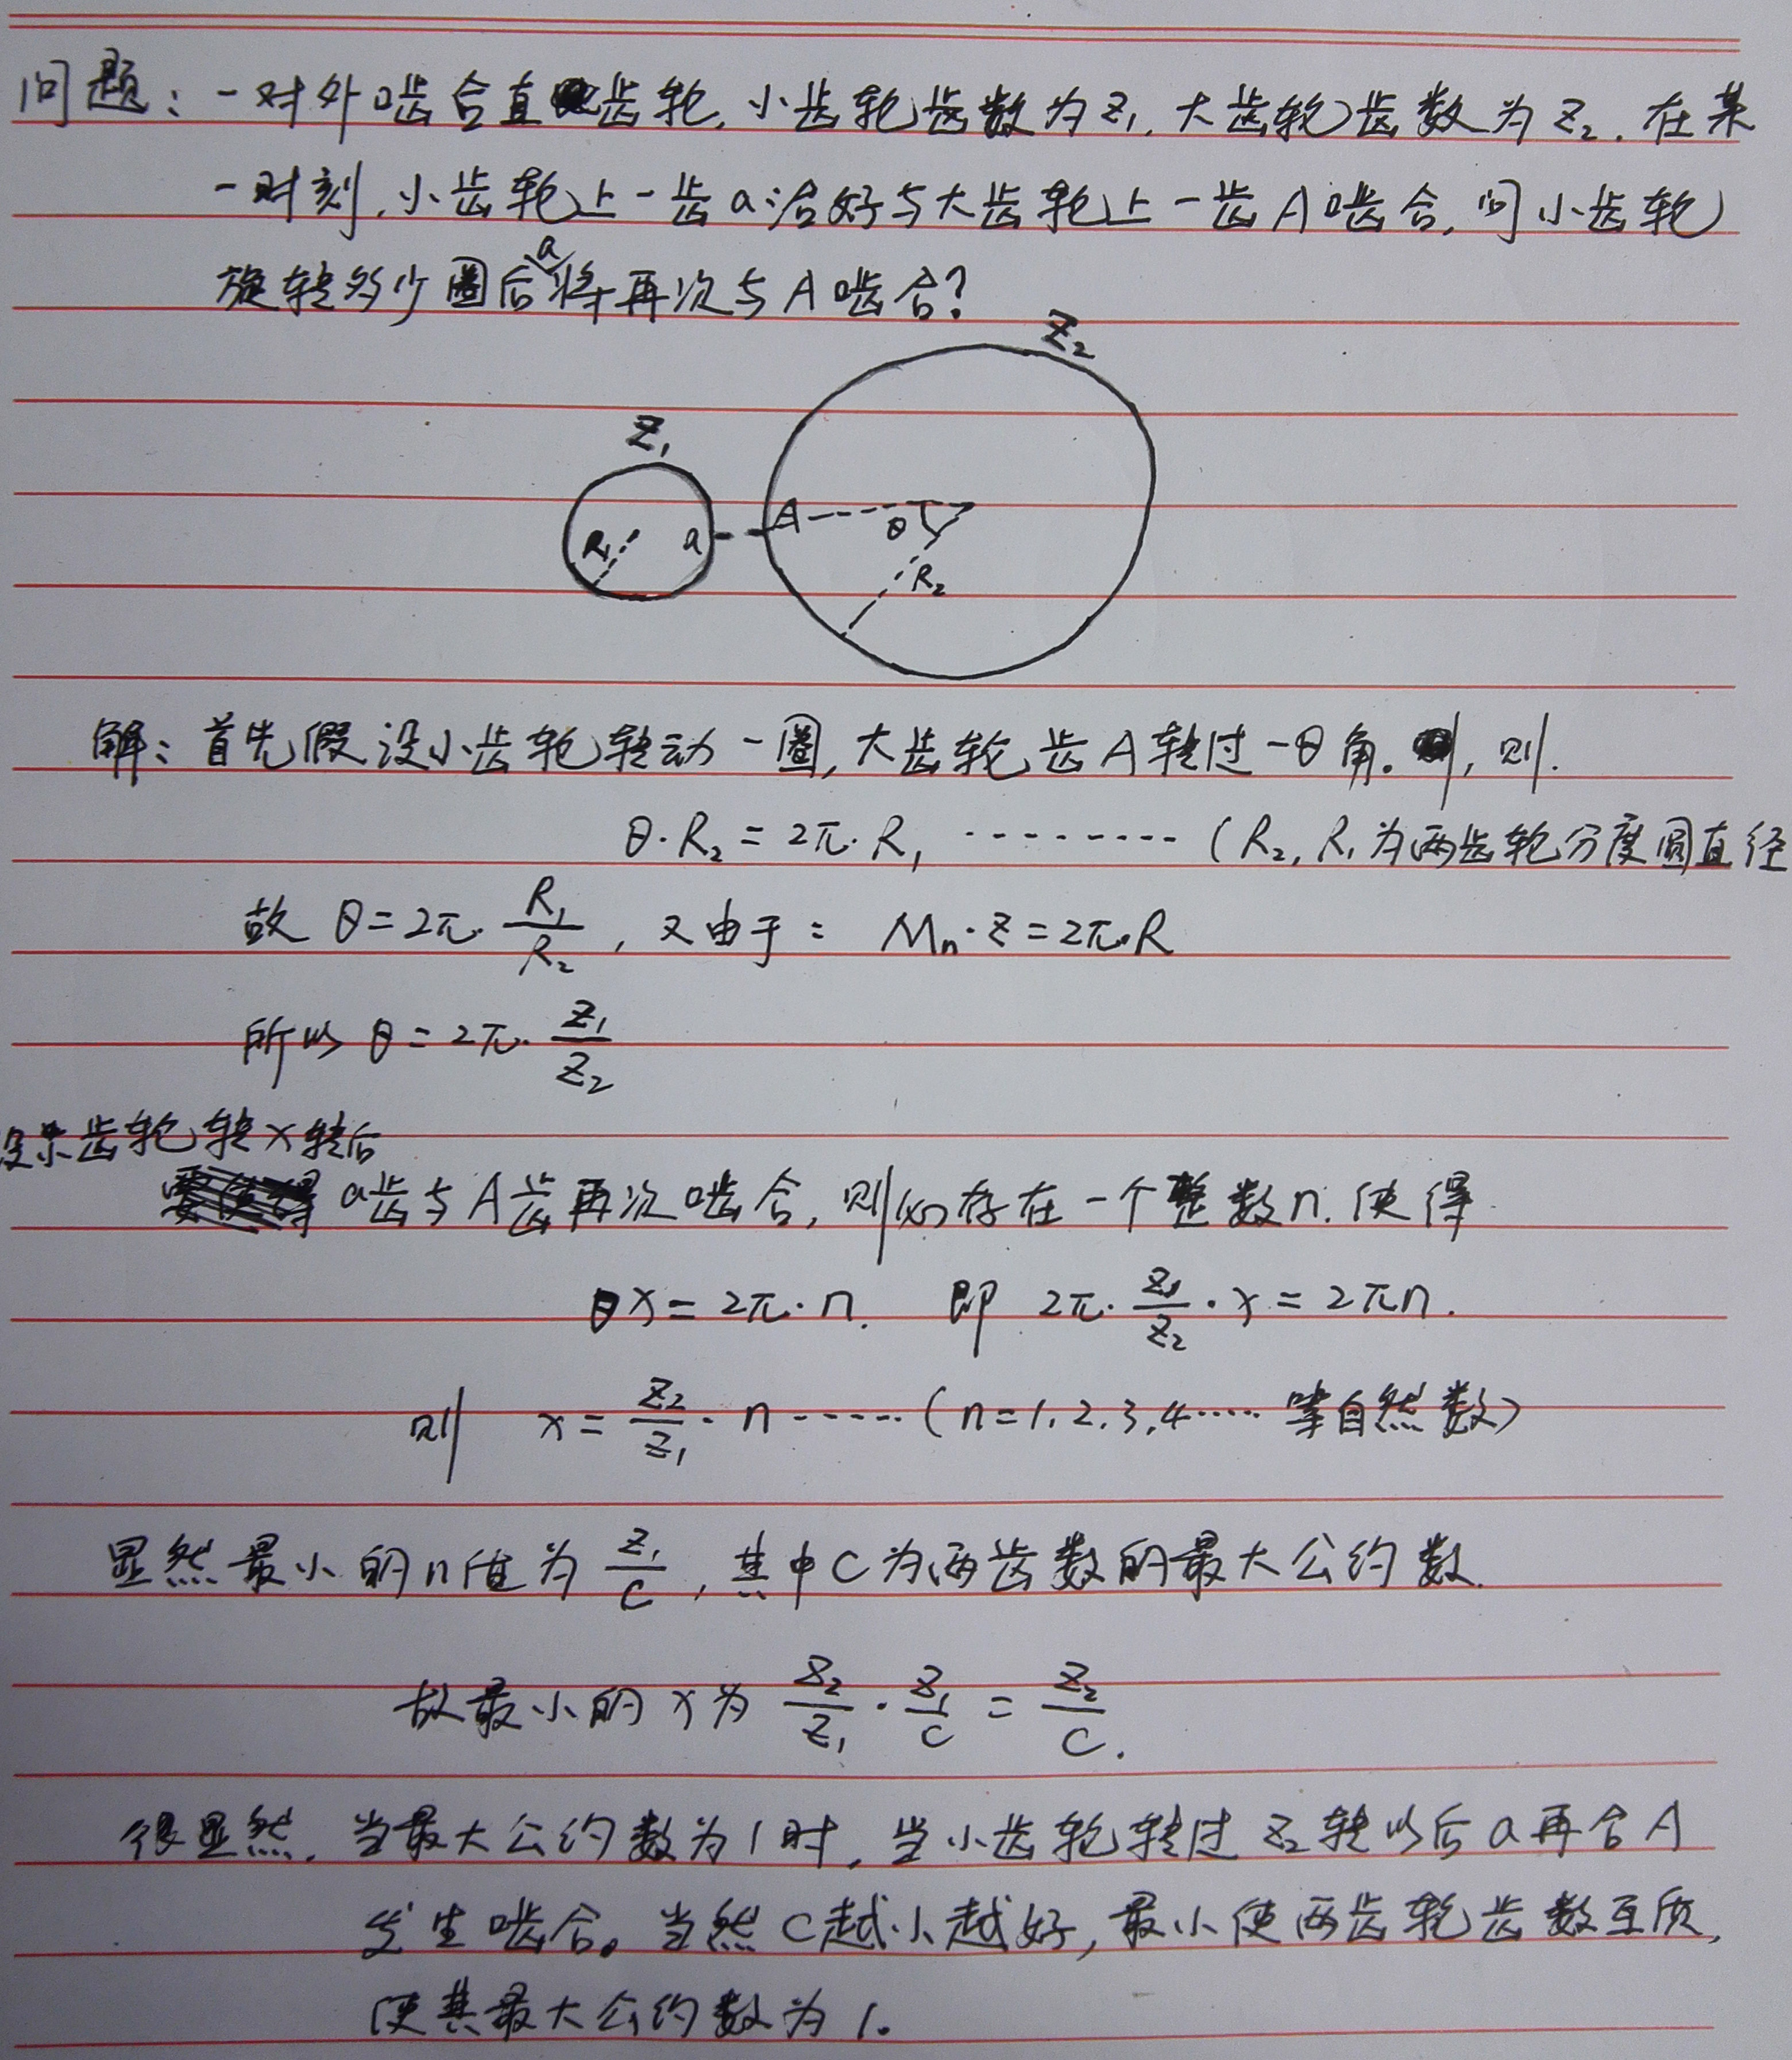 问题：一对外啮合直齿轮，小齿轮齿数为Z₁，大齿轮齿数为Z₂．在某
一时刻，小齿轮上一齿a恰好与大齿轮上一齿A啮合，问小齿轮
旋转多少圈后a将再次与A啮合？
Z₂
Z₁
A θ
R₁ a
R₂
解：首先假设小齿轮转动一圈，大齿轮齿A转过一θ角．，则．
θ·R₂＝2π·R₁ ·········（R₂，R₁为两齿轮分度圆直径
故 θ＝2π·R₁/R₂，又由于： Mn·Z＝2π·R
所以 θ＝2π·Z₁/Z₂
设小齿轮转x转后
a齿与A齿再次啮合，则必存在一个整数n．使得
θx＝2π·n． 即 2π·Z₁/Z₂·x＝2πn．
则 x＝Z₂/Z₁·n······（n＝1，2，3，4·····等自然数）
显然最小的n值为Z₁/C，其中C为两齿数的最大公约数．
故最小的x为 Z₂/Z₁·Z₁/C＝Z₂/C．
很显然，当最大公约数为1时，当小齿轮转过Z₂转以后a再合A
发生啮合。当然C越小越好，最小使两齿轮齿数互质，
使其最大公约数为1。